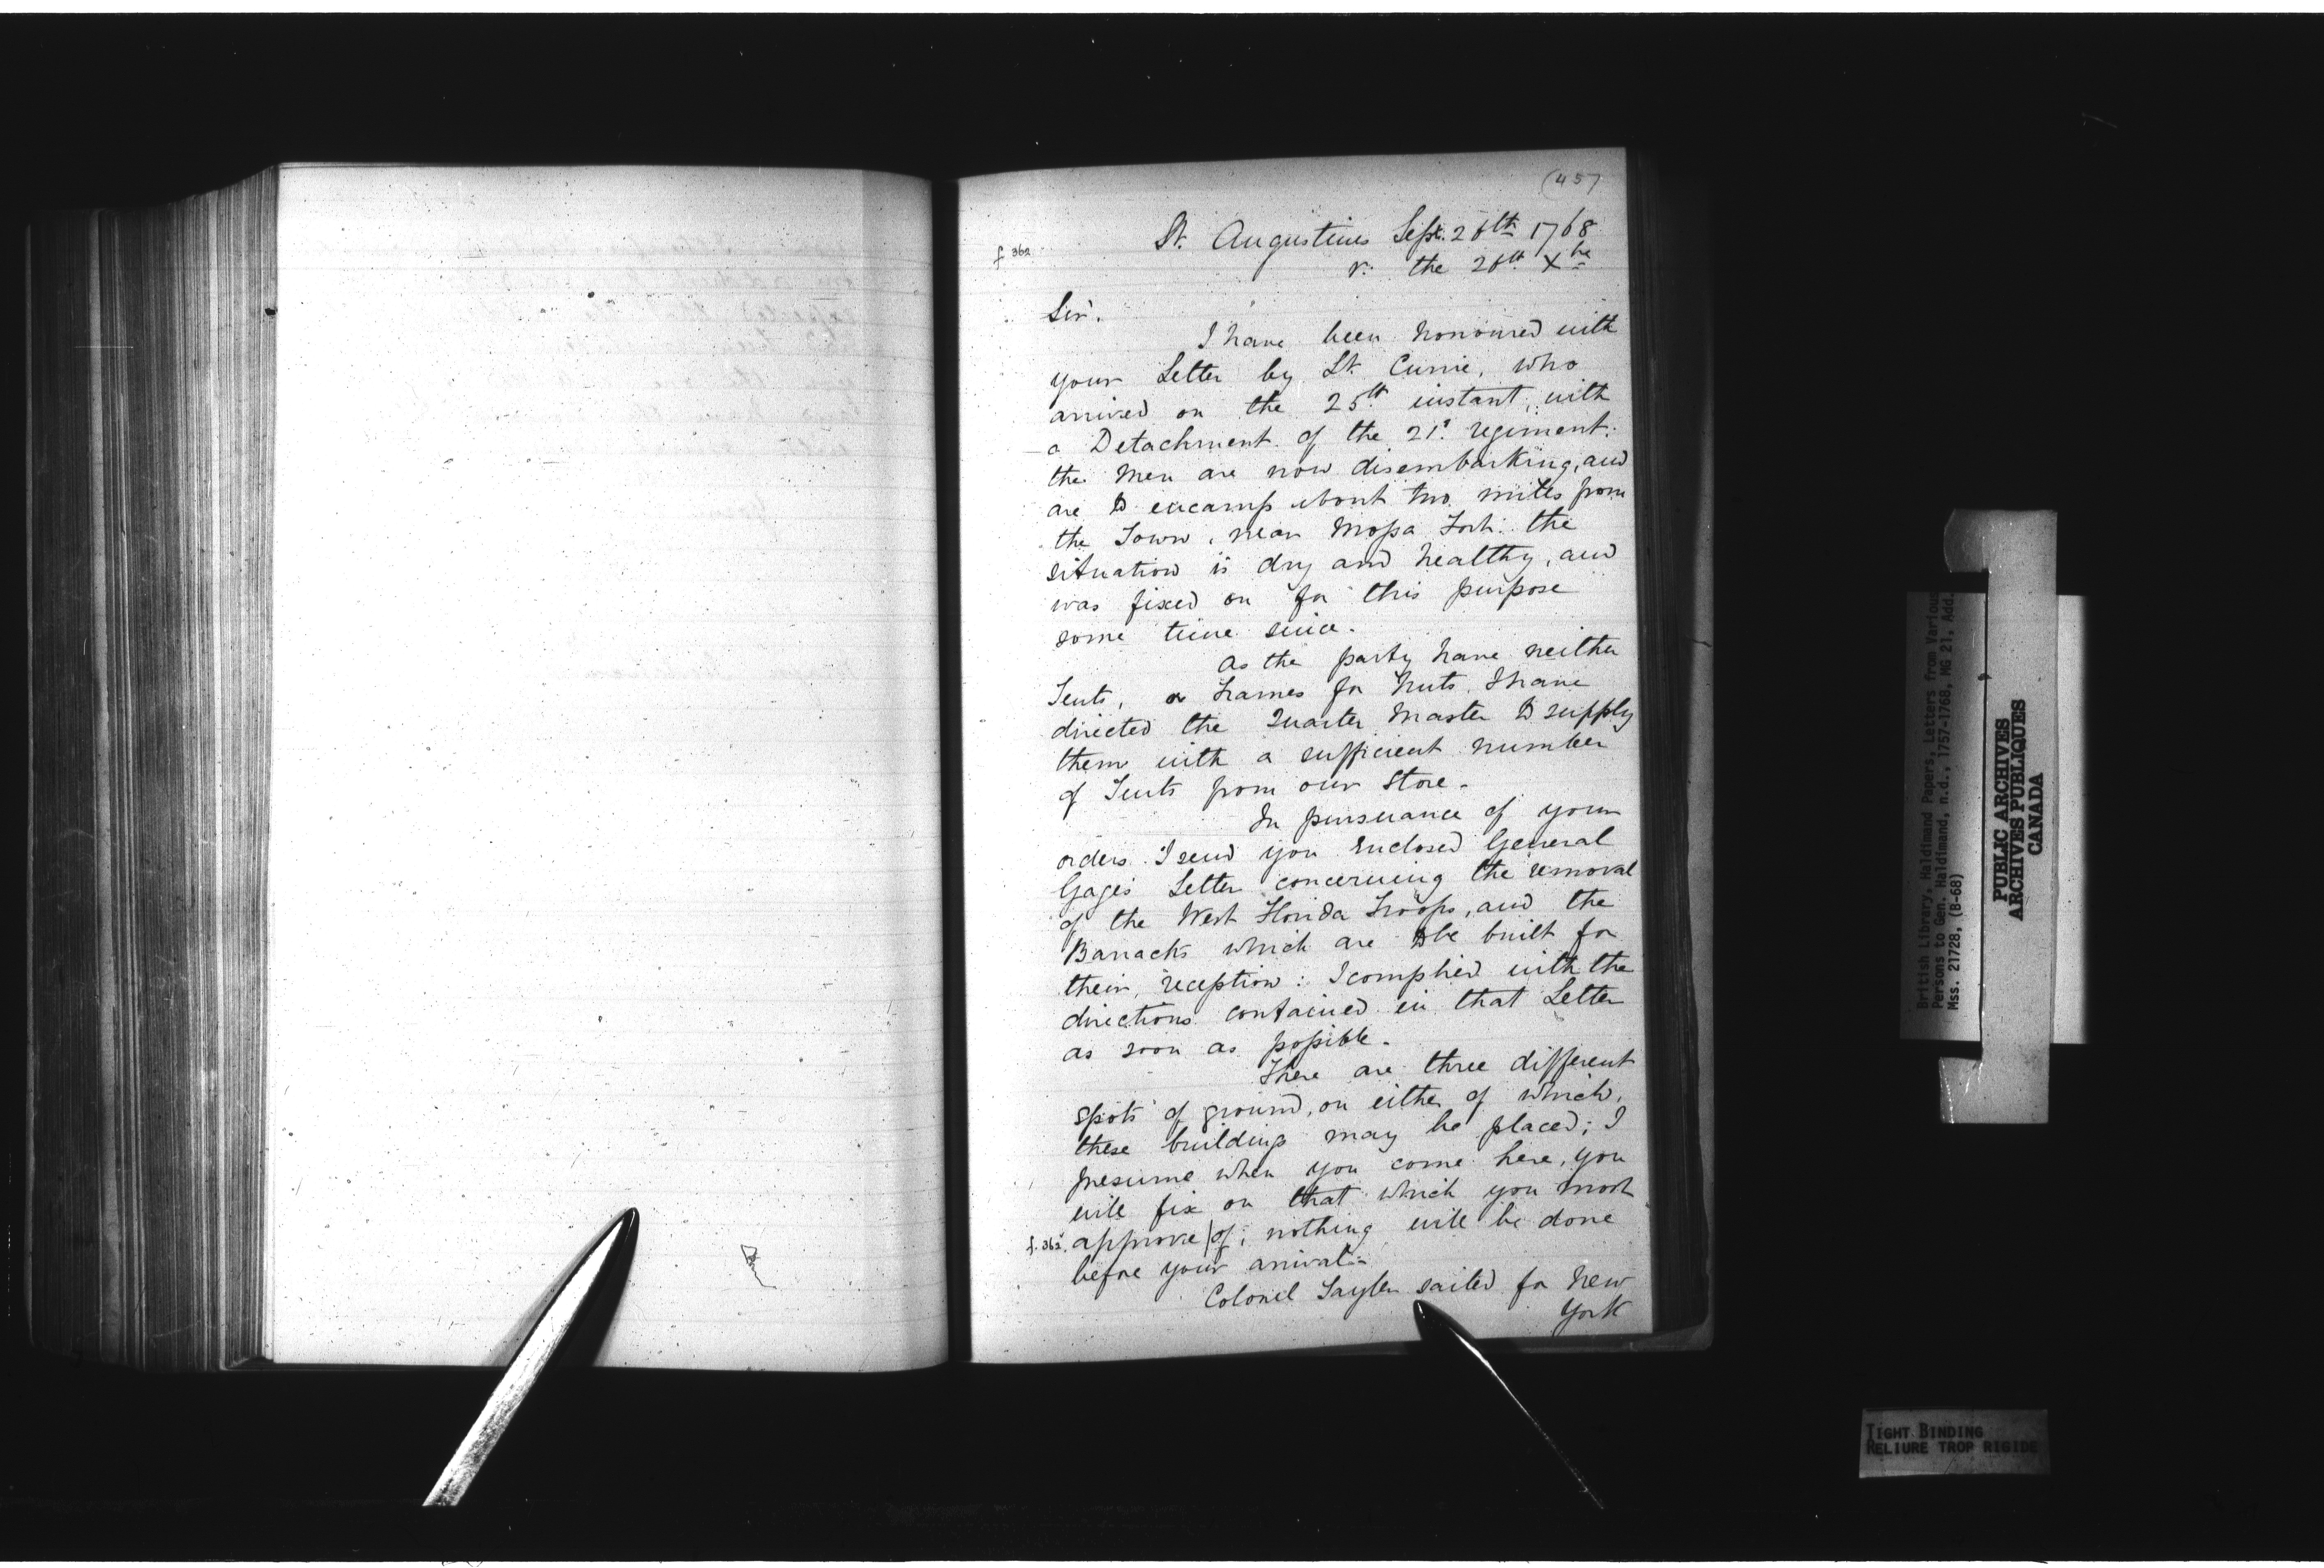 (457
f 362
St. Augustines Sept. 26th 1768
r. the 26th Xbre
Sir.
I have been honoured with
your Letter by Lt. Currie, who
arrived on the 25th instant, with
a Detachment of the 21st regiment:
the Men are now disembarking, and
are to encamp about two miles from
the Town, near Mossa Fort: the
situation is dry and healthy, and
was fixed on for this purpose
some time since.
As the party have neither
Tents, or frames for Huts, I have
directed the Quarter Master to supply
them with a sufficient number
of Tents from our Store.
In pursuance of your
orders I send you enclosed General
Gage's Letter concerning the removal
of the West Florida Troops, and the
Barracks which are to be built for
their reception: I complied with the
directions contained in that Letter
as soon as possible.
There are three different
spots of ground, on either of which,
these buildings may be placed; I
presume when you come here, you
will fix on that which you most
f. 362v. approve | of; nothing will be done
before your arrival.
Colonel Tayler sailed for New
York
British Library, Haldimand Papers, Letters from Various
Persons to Gen. Haldimand, n.d., 1757-1768, MG 21, Add.
Mss. 21728, (B-68)
PUBLIC ARCHIVES
ARCHIVES PUBLIQUES
CANADA
TIGHT BINDING
RELIURE TROP RIGIDE